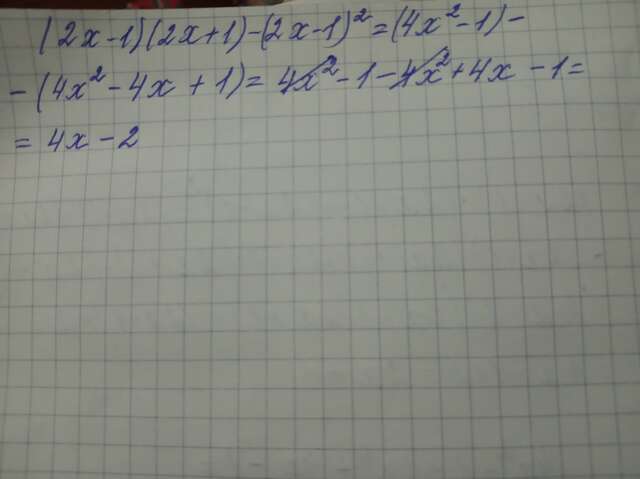 (2x-1)(2x+1)-(2x-1)²=(4x²-1)-
-(4x²-4x+1)=4x²-1-4x²+4x-1=
=4x-2